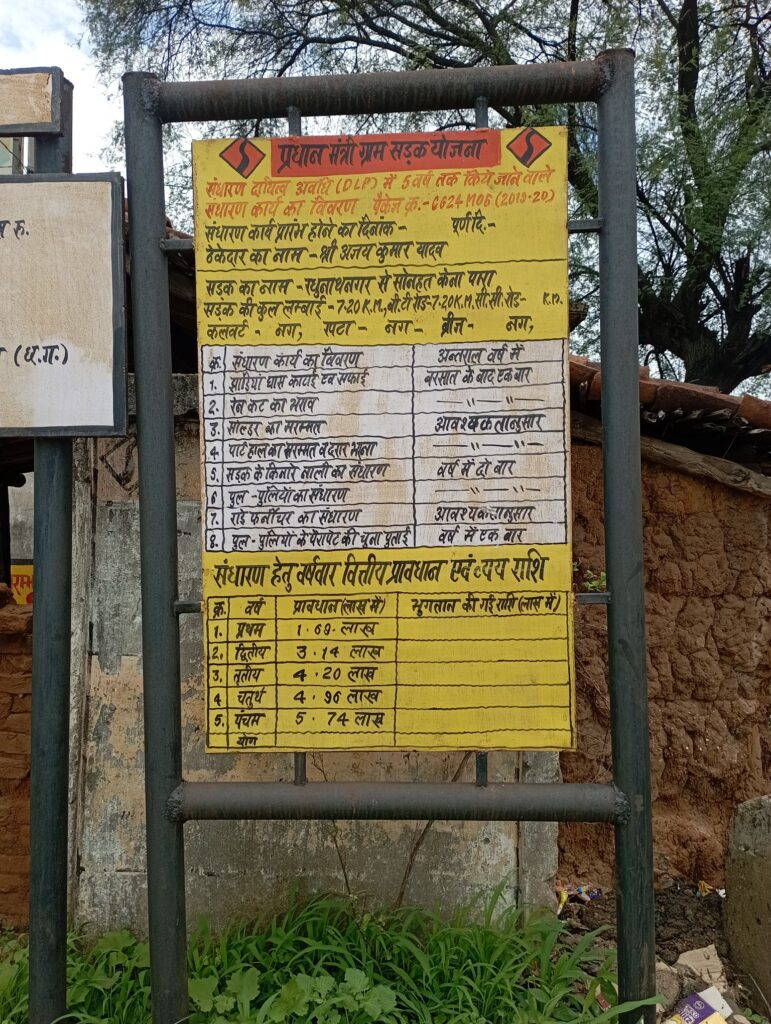 प्रधान मंत्री ग्राम सड़क योजना
संधारण दायित्व अवधि (DLP) में 5 वर्ष तक किये जाने वाले
संधारण कार्य का विवरण पैकेज क्र.- CG24M06 (2019-20)
संधारण कार्य प्रारंभ होने का दिनांक - पूर्ण दि.-
ठेकेदार का नाम - श्री अजय कुमार यादव
सड़क का नाम - रघुनाथनगर से सोनहत केना पारा
सड़क की कुल लम्बाई - 7.20 K.M, बी.टी रोड-7.20K.M, सी.सी. रोड- K.M.
कलवर्ट - नग, रपटा - नग - ब्रीज - नग,
क्र. संधारण कार्य का विवरण अन्तराल वर्ष में
1. झाड़ियाँ घास कटाई एवं सफाई बरसात के बाद एक बार
2. रेन कट का भराव — " — " —
3. सोल्डर का मरम्मत आवश्यकतानुसार
4 पाट होल का मरम्मत व दरार भरना — " — " —
5. सड़क के किनारे नाली का संधारण वर्ष में दो बार
6 पुल - पुलिया का संधारण — " — " —
7. रोड फर्नीचर का संधारण आवश्यकतानुसार
8. पुल - पुलियों के पैरापेट की चूना पुताई वर्ष में एक बार
संधारण हेतु वर्षवार वित्तीय प्रावधान एवं व्यय राशि
क्र. वर्ष प्रावधान (लाख में) भुगतान की गई राशि (लाख में)
1. प्रथम 1.69. लाख
2. द्वितीय 3.14 लाख
3. तृतीय 4.20 लाख
4 चतुर्थ 4.96 लाख
5. पंचम 5.74 लाख
योग
रु.
(ध.ग.)